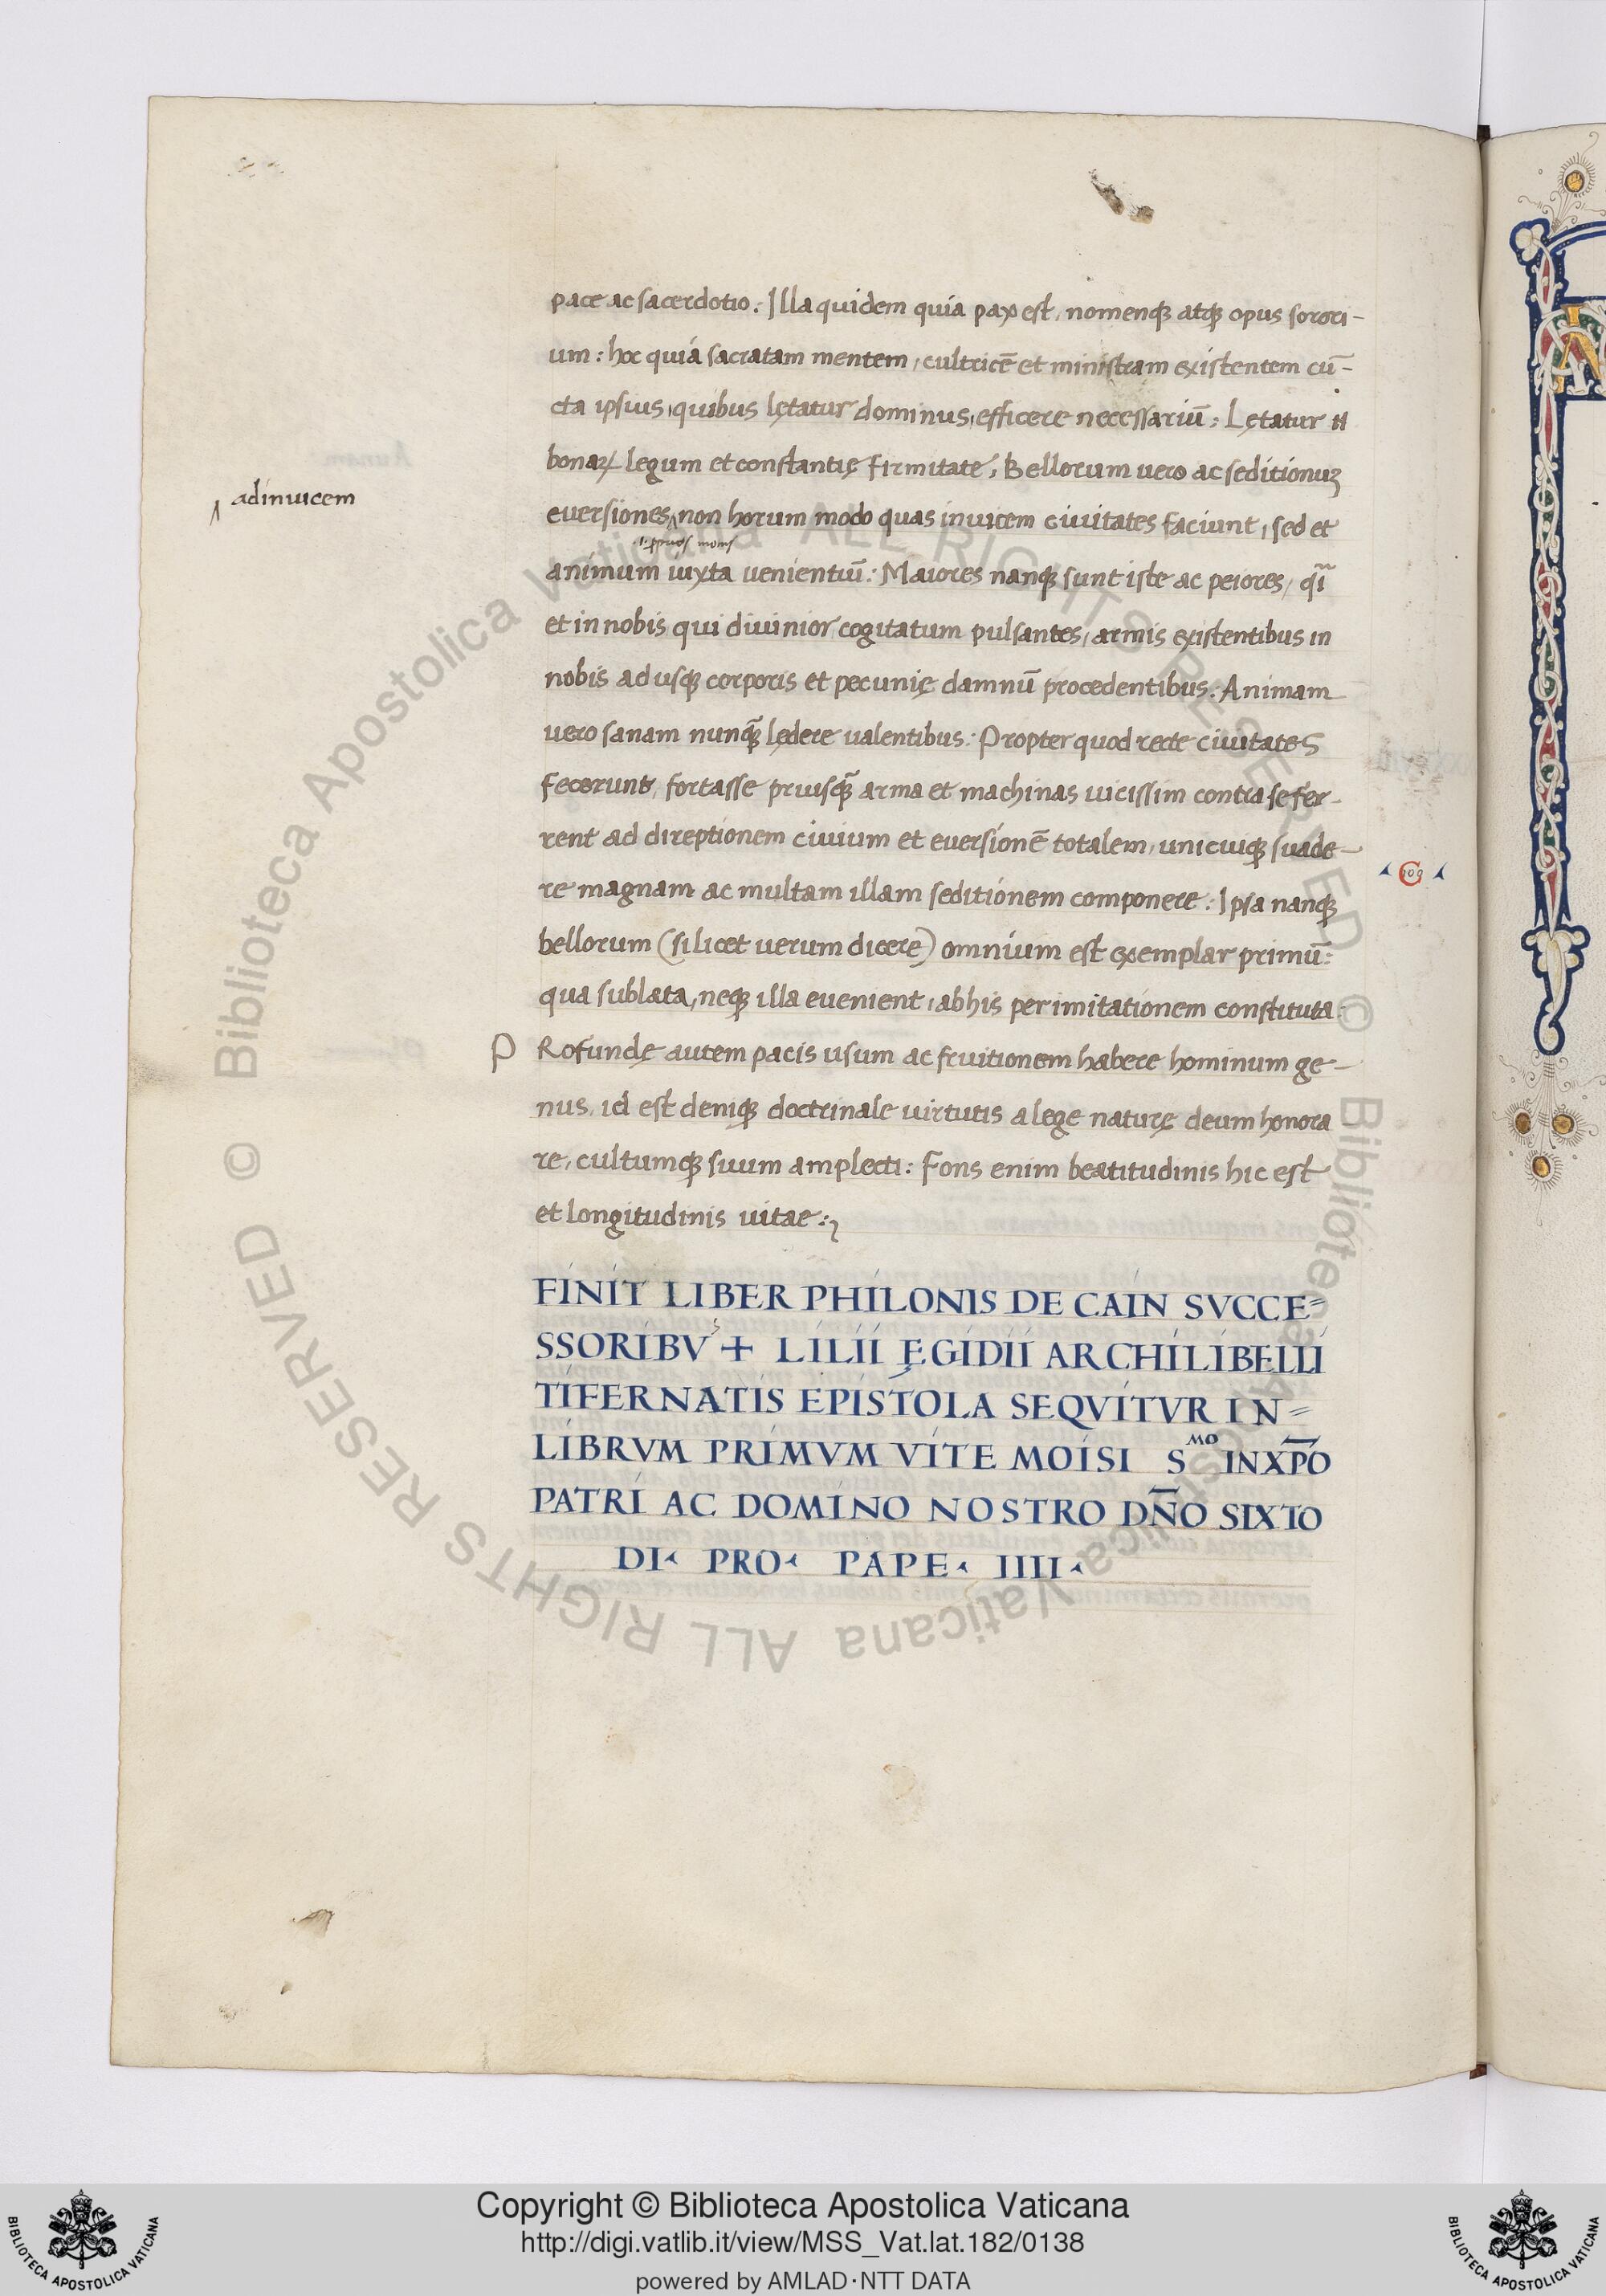 pace ac sacerdotio: Illa quidem quia pax est, nomenqꝫ atqꝫ opus sorori-
um: hoc quia sacratam mentem, cultricē et ministram existentem cū-
cta ipsius, quibus lętatur dominus, efficere necessariū: Lętatur
bonaꝝ legum et constantię firmitate, Bellorum vero ac seditionuꝫ
adinuicem
eversiones, non horum modo quas invicem civitates faciunt, sed et
animum iuxta venientiū: Maiores nanqꝫ sunt iste ac peiores,
et in nobis qui divinior cogitatum pulsantes, armis existentibus in
nobis ad usqꝫ corporis et pecunię damnū procedentibus. Animam
vero sanam nunqꝫ̄ lędere valentibus: Propter quod recte civitates
fecerunt, fortasse priusqꝫ̄ arma et machinas vicissim contra se fer-
rent ad direptionem civium et eversionē totalem, unicuiqꝫ suade-
re magnam ac multam illam seditionem componere: Ipsa nanqꝫ
bellorum (si licet verum dicere) omnium est exemplar primū:
qua sublata, neqꝫ illa evenient, ab his per imitationem constituta.
P Rofundę autem pacis usum ac fruitionem habere hominum ge-
nus, id est deniqꝫ doctrinale virtutis a lege naturę deum honora
re, cultumqꝫ suum amplecti: Fons enim beatitudinis hic est
et longitudinis vitae:
FINIT LIBER PHILONIS DE CAIN SVCCE=
SSORIBVS + LILII ĘGIDII ARCHILIBELLI
TIFERNATIS EPISTOLA SEQVITVR IN=
LIBRVM PRIMVM VITE MOISI SMO IN XP̄O
PATRI AC DOMINO NOSTRO DN̄O SIXTO
DI PRO PAPE IIII
Copyright © Biblioteca Apostolica Vaticana
http://digi.vatlib.it/view/MSS_Vat.lat.182/0138
powered by AMLAD·NTT DATA
BIBLIOTECA APOSTOLICA VATICANA
BIBLIOTECA APOSTOLICA VATICANA
© Biblioteca Apostolica Vaticana ALL RIGHTS RESERVED
© Biblioteca Apostolica Vaticana ALL RIGHTS RESERVED